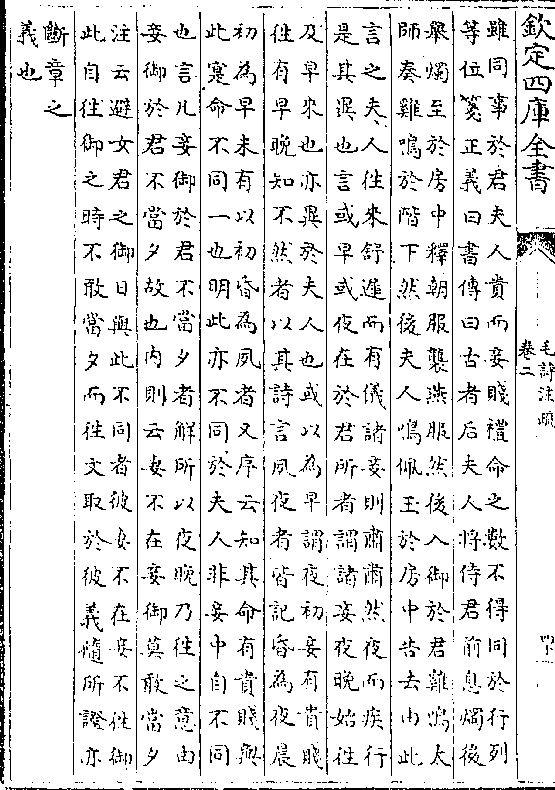 欽定四庫全書
毛詩注疏
卷二
雖同事於君夫人貴而妾賤禮命之數不得同於行列
等位箋正義曰書傳曰古者后夫人將侍君前息燭後
舉燭至於房中釋朝服襲燕服然後入御於君雞鳴大
師奏雞鳴於階下然後夫人鳴佩玉於房中告去由此
言之夫人往來舒遲而有儀諸妾則肅肅然夜而疾行
是其異也言或早或夜在於君所者謂諸妾夜晚始往
及早來也亦異於夫人也或以為早謂夜初妾有貴賤
往有早晚知不然者以其詩言夙夜者皆記昏為夜晨
初為早未有以初昏為夙者又序云知其命有貴賤與
此寔命不同一也明此亦不同於夫人非妾中自不同
也言凡妾御於君不當夕者解所以夜晚乃往之意由
妾御於君不當夕故也內則云妻不在妾御莫敢當夕
注云避女君之御日與此不同者彼妻不在妾不往御
此自往御之時不敢當夕而往文取於彼義隨所證亦
斷章之
義也